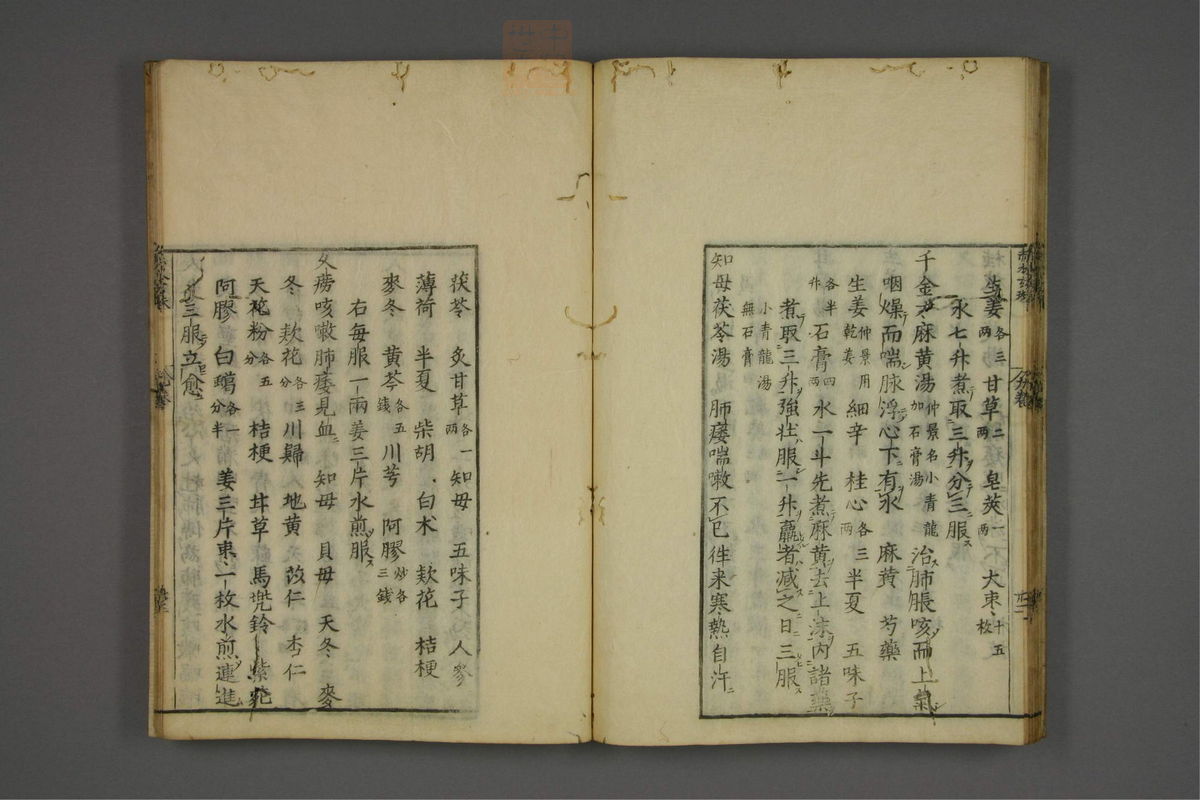 生姜各三兩甘草二兩皂莢一兩大棗十五枚
水七升煮取三升分三服
千金方麻黃湯仲景名小青龍加石膏湯治肺脹咳而上氣
咽燥而喘脉浮心下有水　麻黃　芍藥
生姜仲景用乾姜細辛　桂心各三兩半夏　五味子
各半升石膏四兩水一斗先煮麻黃去上沫內諸藥
煮取三升強壯服一升羸者減之日三服
小青龍湯無石膏
知母茯苓湯　肺痿喘嗽不已徃来寒熱自汗
茯苓　炙甘草各一兩知母　五味子　人參
薄荷　半夏　柴胡　白朮　欵花　桔梗
麥冬　黃芩各五錢川芎　阿膠炒各三錢
右每服一兩姜三片水煎服
久癆咳嗽肺痿見血　知母　貝母　天冬　麥
冬　欵花各三分川歸　地黃　苡仁　杏仁
天花粉各五分桔梗　甘草　馬兠鈴　紫菀
阿膠　白礬各一分半姜三片棗一枚水煎連進
三服立愈